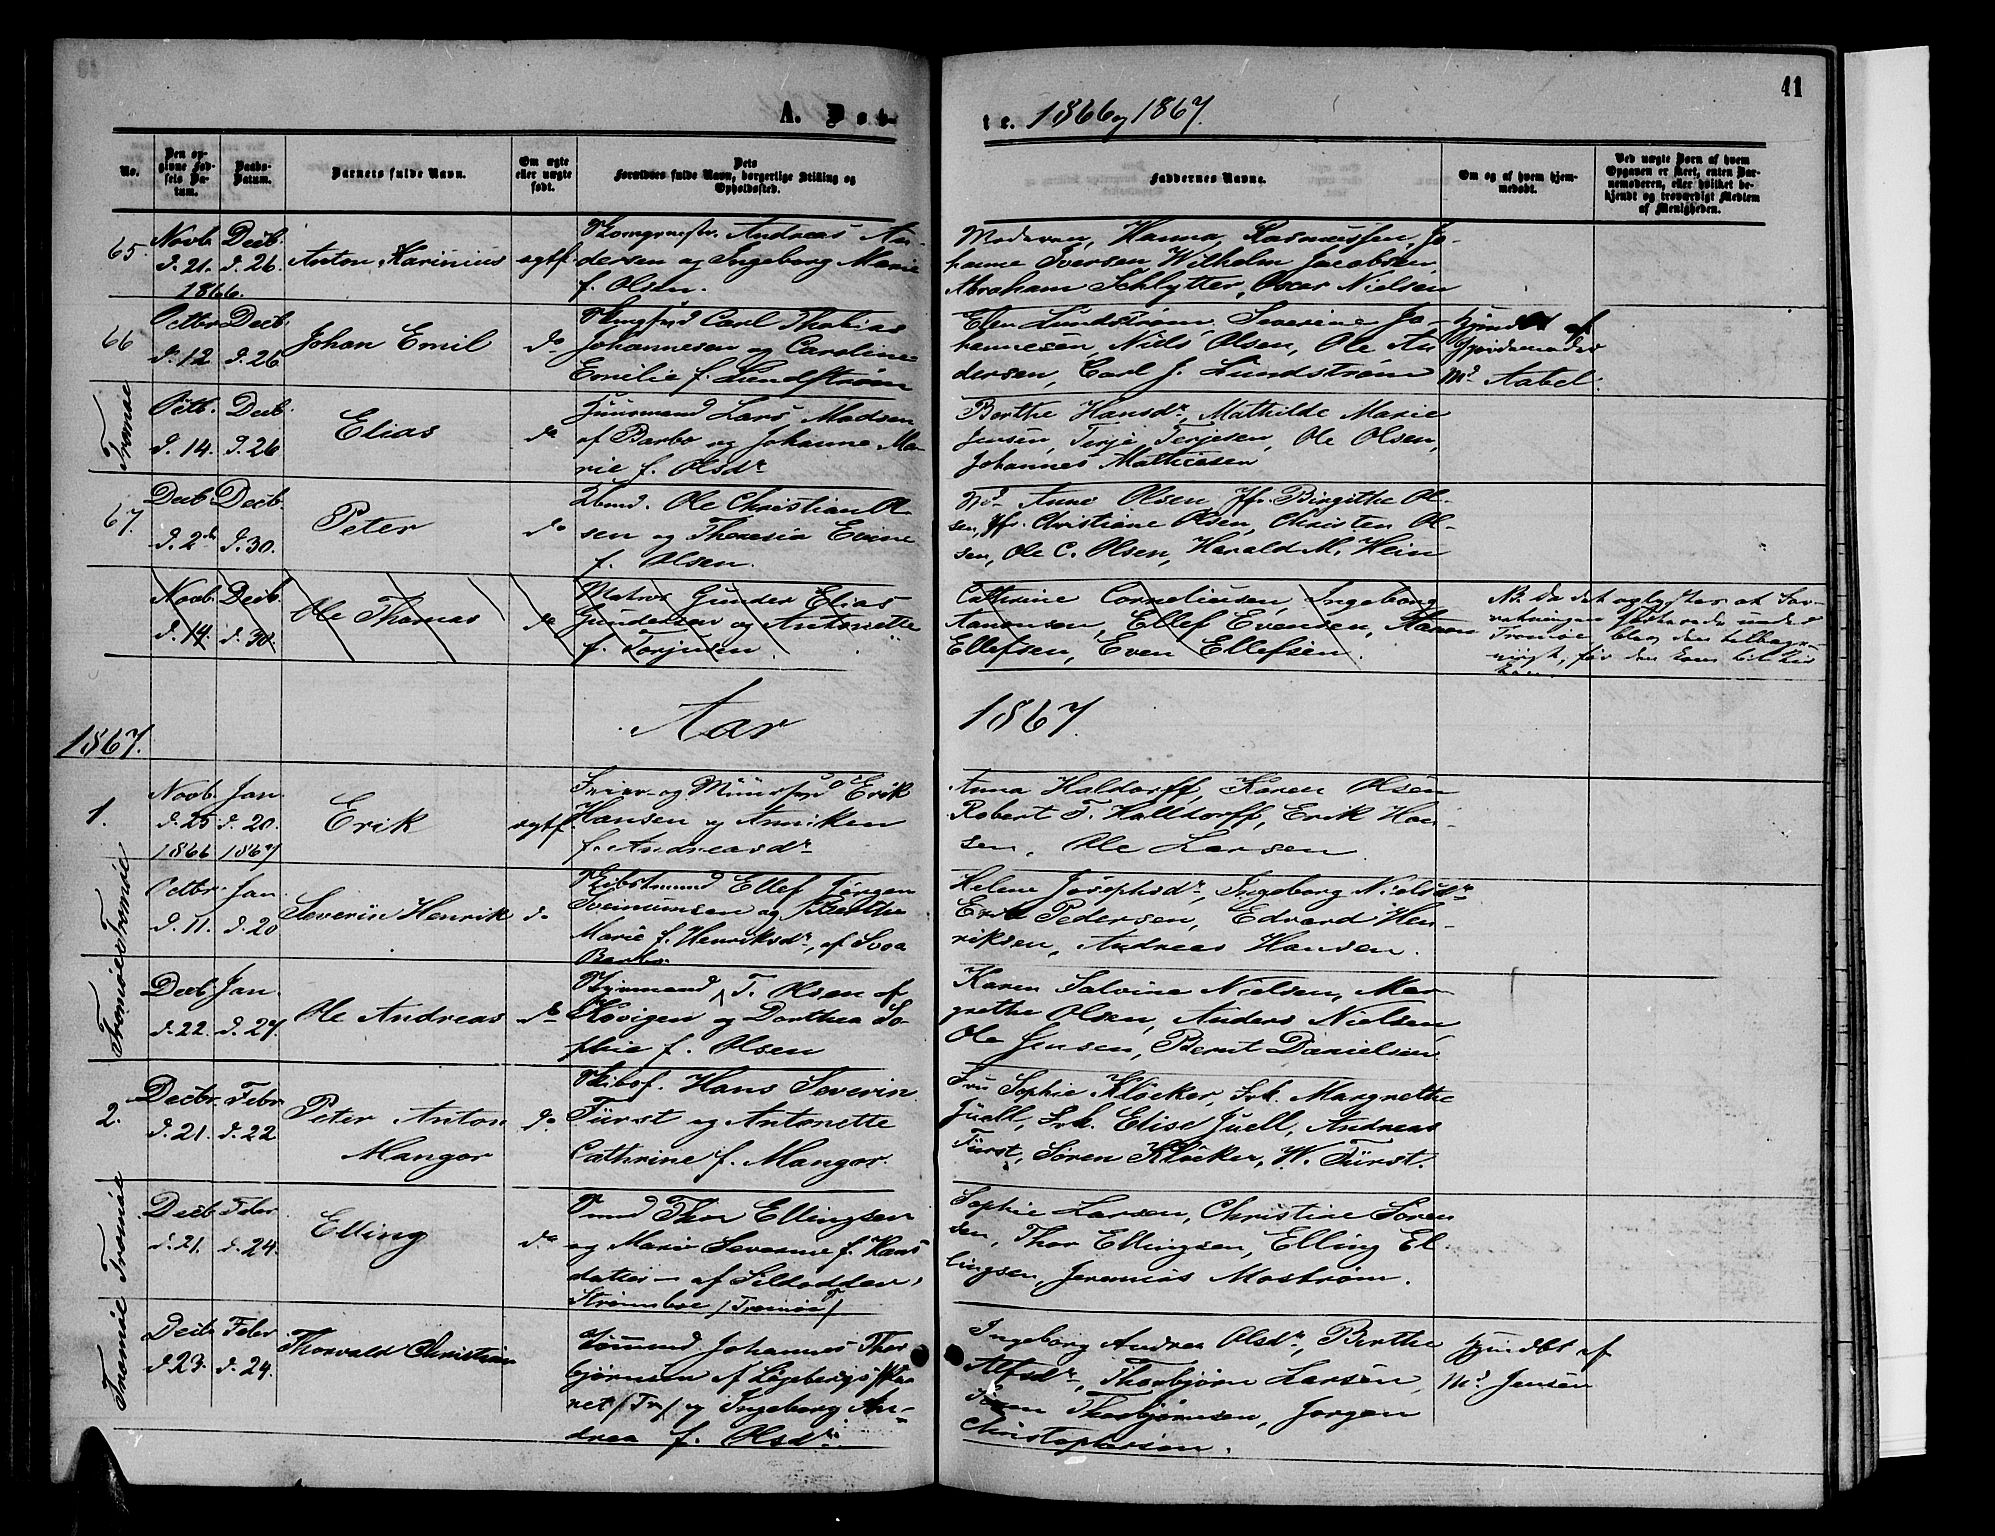 41
A. Døb-
te. 1866 og 1867.
No.
Den op-
givne Fød-
sels Da-
tum.
Daabs-
Datum.
Barnets fulde Navn.
Om ægte
eller uægte
født.
Dets
Forældres fulde Navn, borgerlige Stilling og
Opholdssted.
Faddernes Navne.
Om og af hvem hjem-
medøbt.
Ved uægte Børn af hvem
Opgaven er skeet, enten Bar-
nemoderen, eller hvilket be-
kjendt og troværdigt Medlem
af Menigheden.
65.
Novb.
d. 21.
1866.
Decb.
d. 26.
Anton Karinius
ægtf.
Andreas An-
dersen og Ingeborg Marie
f. Olsen.
Moderen, Hanna Rasmussen, Jo-
hanne Iversen, Wilhelm Jacobsen,
Abraham Schlytter, Oscar Nielsen
66
Octbr
d. 12
Decb.
d. 26
Johan Emil
do
Carl Thobias
Johannesen og Caroline
Emilie f. Lundstrøm
Elen Lundstrøm, Severine Jo-
hannesen, Niels Olsen, Ole An-
dersen, Carl J. Lundstrøm
Hjmdbt af
Gjordemoder
Md Aabel.
Tromøe
Octb.
d. 14.
Decb.
d. 26
Elias
do
Huusmand Lars Madsen
af Barbo og Johanne Ma-
rie f. Olsdr
Berthe Hansdr, Mathilde Marie
Jensen, Terje Terjesen, Ole Olsen,
Johannes Mathiesen
67.
Decb.
d. 2de
Decb.
d. 30.
Peter
do
Ole Christian Ol-
sen og Theresia Evine
f. Olsen.
Md Anne Olsen, Jfr. Birgithe Ol-
sen, Jfr. Christiane Olsen, Christen Ol-
sen, Ole C. Olsen, Harald M. Hein
Novb.
d. 14
Decb.
d. 30.
Ole Thomas
do
Matros Gunder Elias
Gundersen og Antonette
f. Torjusen.
Cathrine Corneliusen, Ingeborg
Aanonsen, Ellef Evensen, Aanon
Ellefsen, Even Ellefsen.
NB. Da det oplystes at For-
retningen henhørte under
Tromøe, blev den tilbage-
vist, før den kom til
1867.
Aar
1867.
1.
Novb.
d. 25
1866
Jan.
d. 20.
1867
Erik
ægtf.
Feier- og Muursvd Erik
Hansen og Anniken
f. Andreasdr
Anna Haldorff, Karen Olsen
Robert T. Halldorff, Erik Han-
sen, Ole Larsen
Tromøe
Octbr.
d. 11.
Jan.
d. 20
Severin Henrik
do
Skibstmmd Ellef Jørgen
Sveinumsen og Berthe
Marie f. Henriksdr, af
Barbo
Helene Josephsdr, Ingeborg Nielsdr
Erik Pedersen, Edvard Hen-
riksen, Andreas Hansen.
Tromøe
Decb.
d. 22.
Jan.
d. 27.
Ole Andreas
do
T. Olsen af
Skovigen og Dorthea So-
phie f. Olsen
Karen Salvine Nielsen, Mar-
grethe Olsen, Anders Nielsen,
Ole Jensen, Bernt Danielsen
2.
Decbr.
d. 21.
Febr
d. 22
Peter Anton
Mangor
do
Skibsf. Hans Severin
Fürst og Antonette
Cathrine f. Mangor.
Fru Sophie Kløcker, Frk. Margrethe
Juell, Frk. Elise Juell, Andreas
Fürst, Søren Kløcker, W. Fürst.
Tromøe
Decb.
d. 21.
Febr
d. 24.
Elling
do
Thor Ellingsen
og Maria Severine f. Hans
datter - af Sildodden,
Strømsboe /Tromøe/
Sophie Larsen, Christine Sören
sen, Thor Ellingsen, Elling El-
lingsen, Jeremias Mostrøm.
Tromøe
Decb
d. 23.
Febr
d. 24.
Thorvald Christian
Sømand Johannes Thor
bjørnsen af
/Tr/ og Ingeborg An-
drea f. Olsdr
Ingeborg Andrea Olsdr, Berthe
Alfsdr, Thorbjørn Larsen,
Thorbjørnsen, Jørgen
Christophersen.
Hjmdbt af
Md Jensen